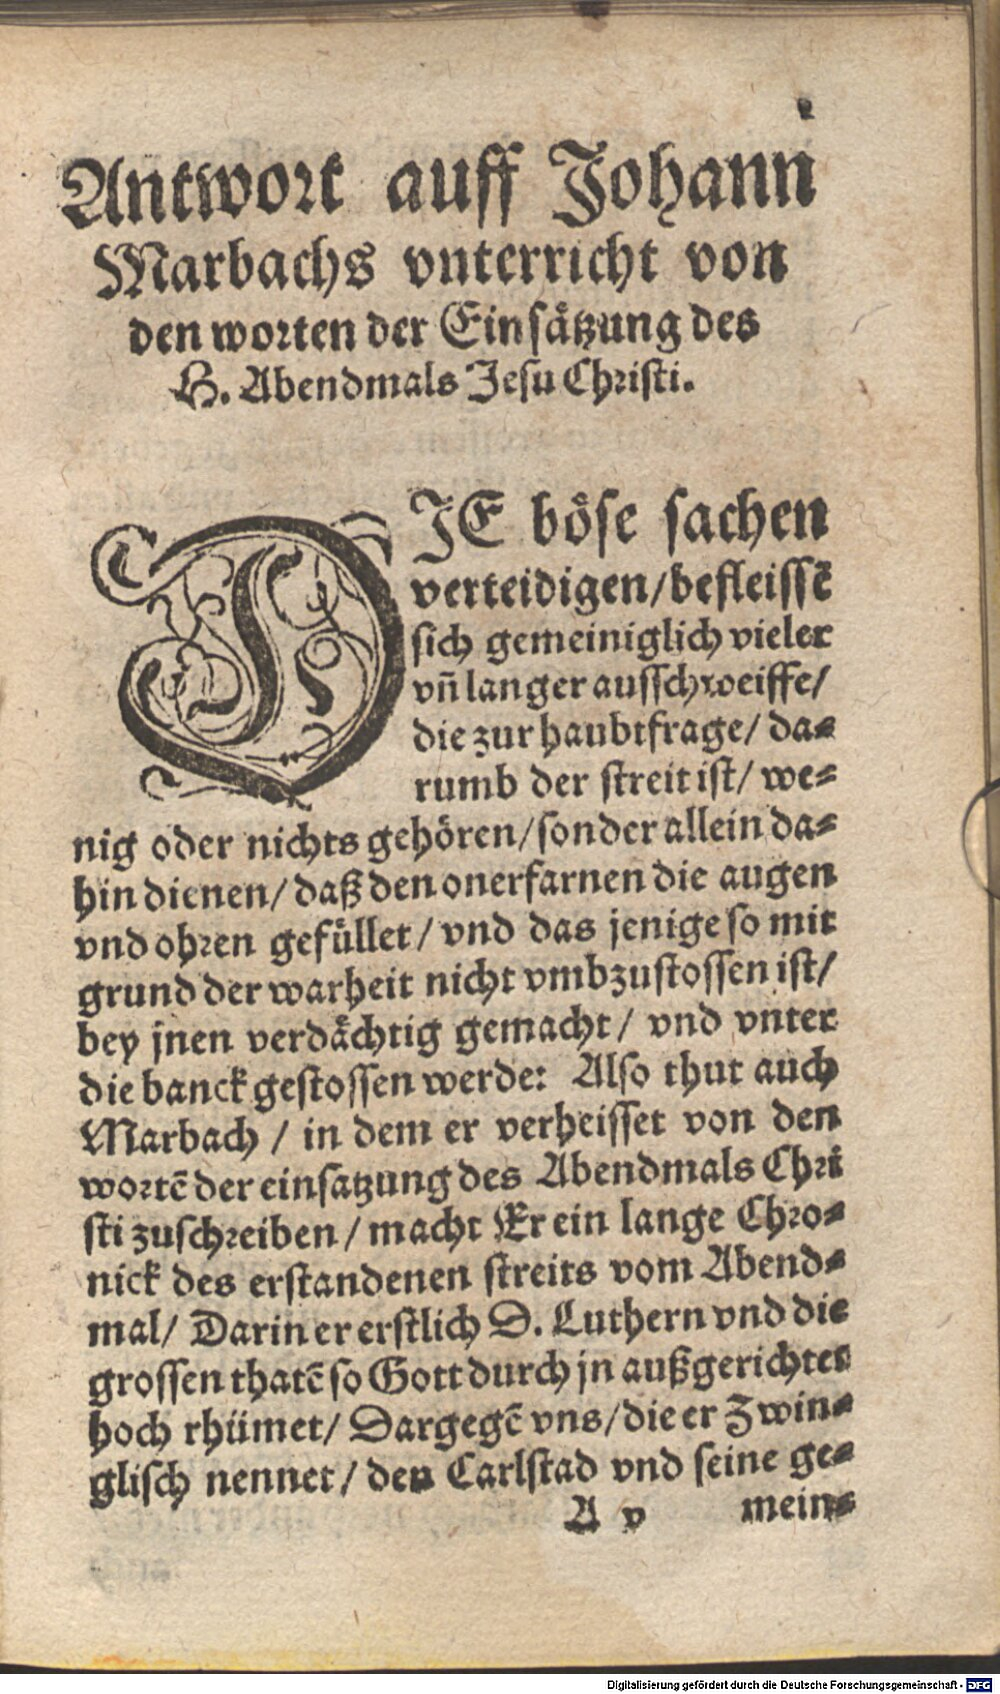 Antwort auff Johann
Marbachs vnterricht von
den worten der Einsåtzung des
H. Abendmals Jesu Christi.
DIE böse sachen
verteidigen/befleissẽ
sich gemeiniglich vieler
vñ langer ausschweiffe/
die zur haubtfrage/ da-
rumb der streit ist/ we-
nig oder nichts gehören/sonder allein da-
hin dienen/ daß den onerfarnen die augen
vnd ohren gefüllet/ vnd das jenige so mit
grund der warheit nicht vmbzustossen ist/
bey jnen verdåchtig gemacht/ vnd vnter
die banck gestossen werde: Also thut auch
Marbach / in dem er verheisset von den
wortẽ der einsatzung des Abendmals Chri
sti zuschreiben/ macht Er ein lange Chro-
nick des erstandenen streits vom Abend-
mal/ Darin er erstlich D. Luthern vnd die
grossen thatẽ so Gott durch jn außgerichtet
hoch rhümet/ Dargegẽ vns/die er Zwin-
glisch nennet/ den Carlstad vnd seine ge-
A v mein-
Digitalisierung gefördert durch die Deutsche Forschungsgemeinschaft - DFG